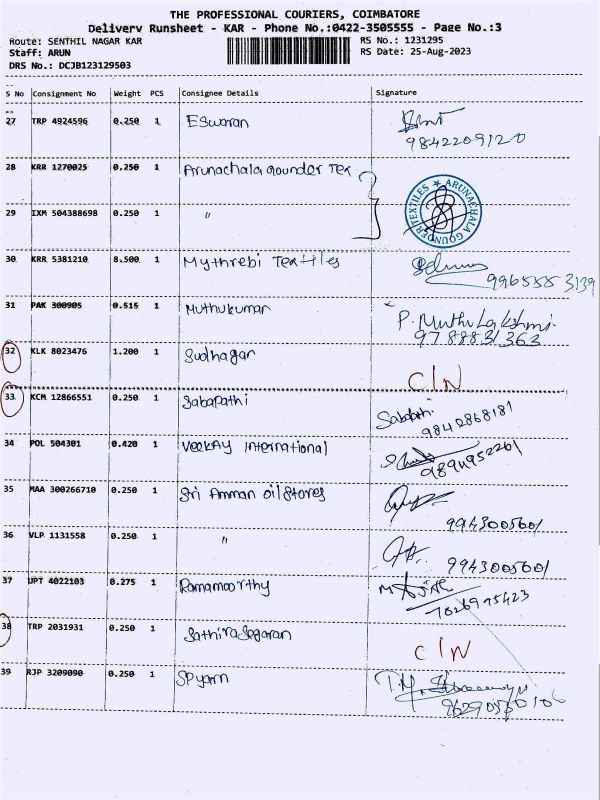 THE PROFESSIONAL COURIERS, COIMBATORE
Delivery Runsheet - KAR - Phone No.:0422-3505555 - Page No.:3
Route: SENTHIL NAGAR KAR RS No.: 1231295
Staff: ARUN RS Date: 25-Aug-2023
DRS No.: DCJB123129503
S No Consignment No Weight PCS Consignee Details Signature
27 TRP 4924596 0.250 1 Eswaran
9842209120
28 KRR 1270025 0.250 1 Arunachala gounder Tex
ARUNACHALA GOUNDER TEXTILES
29 IXM 504388698 0.250 1 "
30 KRR 5381210 8.500 1 Mythrebi Textiles
9965553139
31 PAK 300905 0.515 1 Muthukumar P. Muthu Lakshmi.
9788831363
32 KLK 8023476 1.200 1 Sudhagar
C/N
33 KCM 12866551 0.250 1 Sabapathi Sabapathi
9842868181
34 POL 504301 0.420 1 Veekay International
9894952261
35 MAA 300266710 0.250 1 Sri Amman Oil Stores
9943005601
36 VLP 1131558 0.250 1 "
9943005601
37 UPT 4022103 0.275 1 Ramamoorthy
7026975423
38 TRP 2031931 0.250 1 Sathirasegaran
C/N
39 RJP 3209090 0.250 1 SP yarn